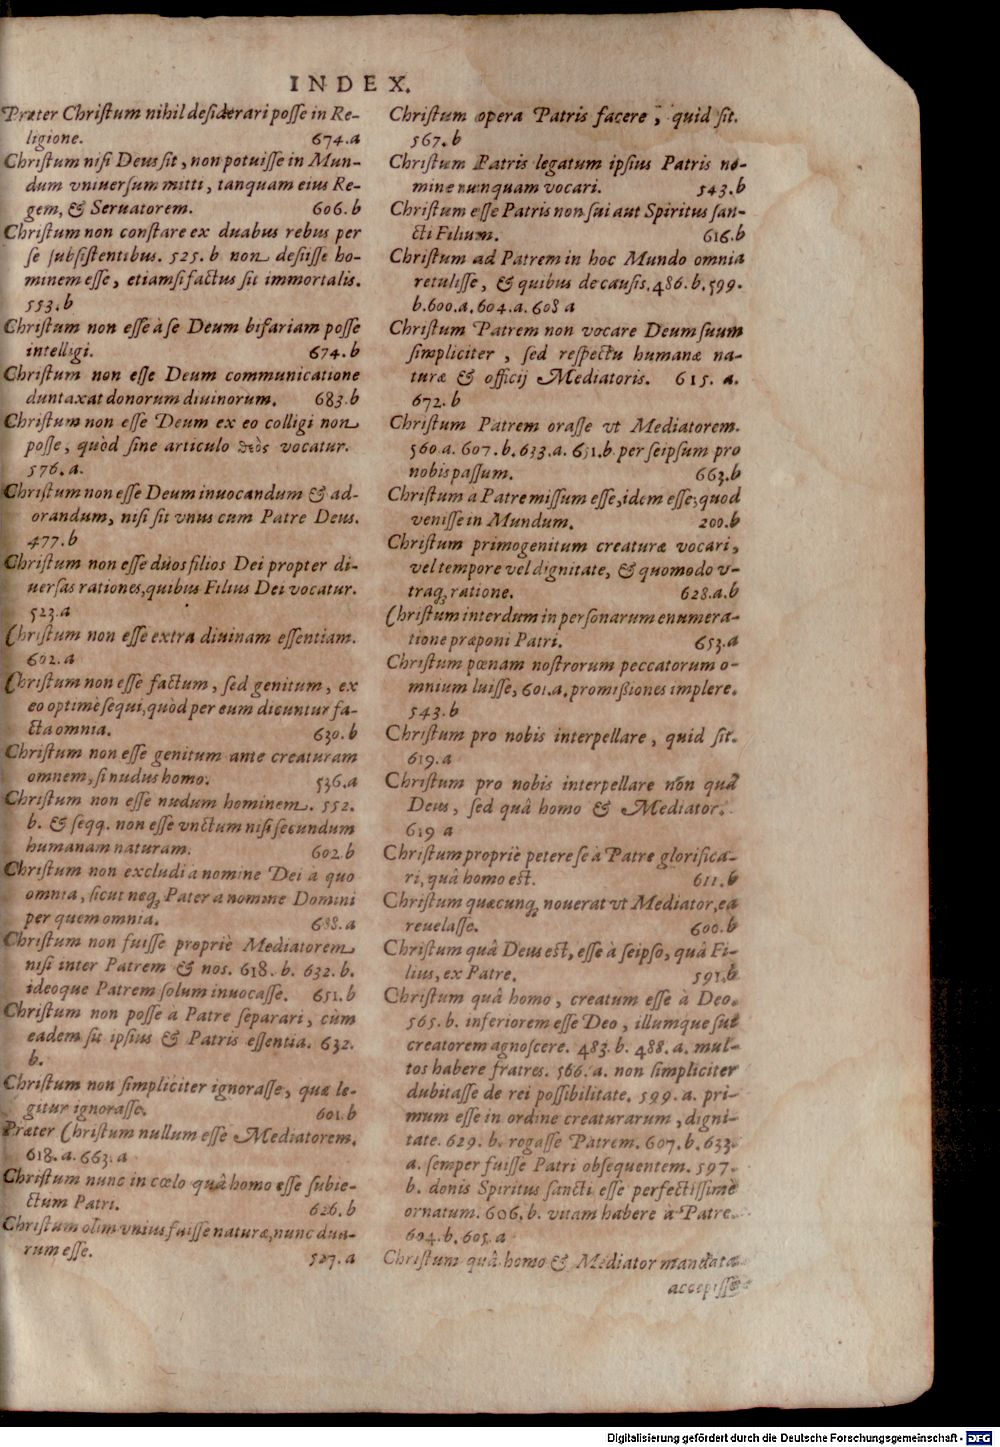 INDEX.
Præter Christum nihil desiderari posse in Re-
ligione. 674.a
Christum nisi Deus sit, non potuisse in Mun-
dum vniuersum mitti, tanquam eius Re-
gem, & Seruatorem. 606.b
Christum non constare ex duabus rebus per
se subsistentibus. 525.b non desiisse ho-
minem esse, etiamsi factus sit immortalis.
553.b
Christum non esse à se Deum bifariam posse
intelligi. 674.b
Christum non esse Deum communicatione
duntaxat donorum diuinorum. 683.b
Christum non esse Deum ex eo colligi non
posse, quòd sine articulo θεὸς vocatur.
576.a.
Christum non esse Deum inuocandum & ad-
orandum, nisi sit vnus cum Patre Deus.
477.b
Christum non esse duos filios Dei propter di-
uersas rationes, quibus Filius Dei vocatur.
523.a
Christum non esse extra diuinam essentiam.
602.a
Christum non esse factum, sed genitum, ex
eo optimè sequi, quòd per eum dicuntur fa-
cta omnia. 630.b
Christum non esse genitum ante creaturam
omnem, si nudus homo. 536.a
Christum non esse nudum hominem. 552.
b. & seqq. non esse vnctum nisi secundum
humanam naturam. 602.b
Christum non excludi a nomine Dei a quo
omnia, sicut neq; Pater a nomine Domini
per quem omnia. 688.a
Christum non fuisse propriè Mediatorem
nisi inter Patrem & nos. 618.b. 632.b.
ideoque Patrem solum inuocasse. 651.b
Christum non posse à Patre separari, cùm
eadem sit ipsius & Patris essentia. 632.
b.
Christum non simpliciter ignorasse, quæ le-
gitur ignorasse. 601.b
Præter Christum nullum esse Mediatorem.
618.a. 663.a
Christum nunc in cœlo quâ homo esse subie-
ctum Patri. 626.b
Christum olim vnius fuisse naturæ, nunc dua-
rum esse. 527.a
Christum opera Patris facere, quid sit.
567.b
Christum Patris legatum ipsius Patris no-
mine nunquam vocari. 543.b
Christum esse Patris non sui aut Spiritus san-
cti Filium. 616.b
Christum ad Patrem in hoc Mundo omnia
retulisse, & quibus de causis. 486.b. 599.
b. 600.a. 604.a. 608 a
Christum Patrem non vocare Deum suum
simpliciter, sed respectu humanæ na-
turæ & officij Mediatoris. 615. a.
672.b
Christum Patrem orasse vt Mediatorem.
560.a. 607.b. 633.a. 651.b. per seipsum pro
nobis passum. 663.b
Christum a Patre missum esse, idem esse, quod
venisse in Mundum. 200.b
Christum primogenitum creaturæ vocari,
vel tempore vel dignitate, & quomodo v-
traq; ratione. 628.a.b
Christum interdum in personarum enumera-
tione præponi Patri. 653.a
Christum pœnam nostrorum peccatorum o-
mnium luisse, 601.a. promißiones implere.
543.b
Christum pro nobis interpellare, quid sit.
619.a
Christum pro nobis interpellare non quâ
Deus, sed quâ homo & Mediator.
619 a
Christum propriè petere se à Patre glorifica-
ri, quâ homo est. 611.b
Christum quæcunq; nouerat vt Mediator, ea
reuelasse. 600.b
Christum quâ Deus est, esse à seipso, quâ Fi-
lius, ex Patre. 591.b
Christum quâ homo, creatum esse à Deo.
565.b. inferiorem esse Deo, illumque sui
creatorem agnoscere. 483.b. 488.a. mul-
tos habere fratres. 566.a. non simpliciter
dubitasse de rei possibilitate. 599.a. pri-
mum esse in ordine creaturarum, digni-
tate. 629.b. rogasse Patrem. 607.b. 633.
a. semper fuisse Patri obsequentem. 597.
b. donis Spiritus sancti esse perfectissimè
ornatum. 606.b. vitam habere à Patre.
604.b. 605.a
Christum quâ homo & Mediator mandata
accepisse
Digitalisierung gefördert durch die Deutsche Forschungsgemeinschaft - DFG